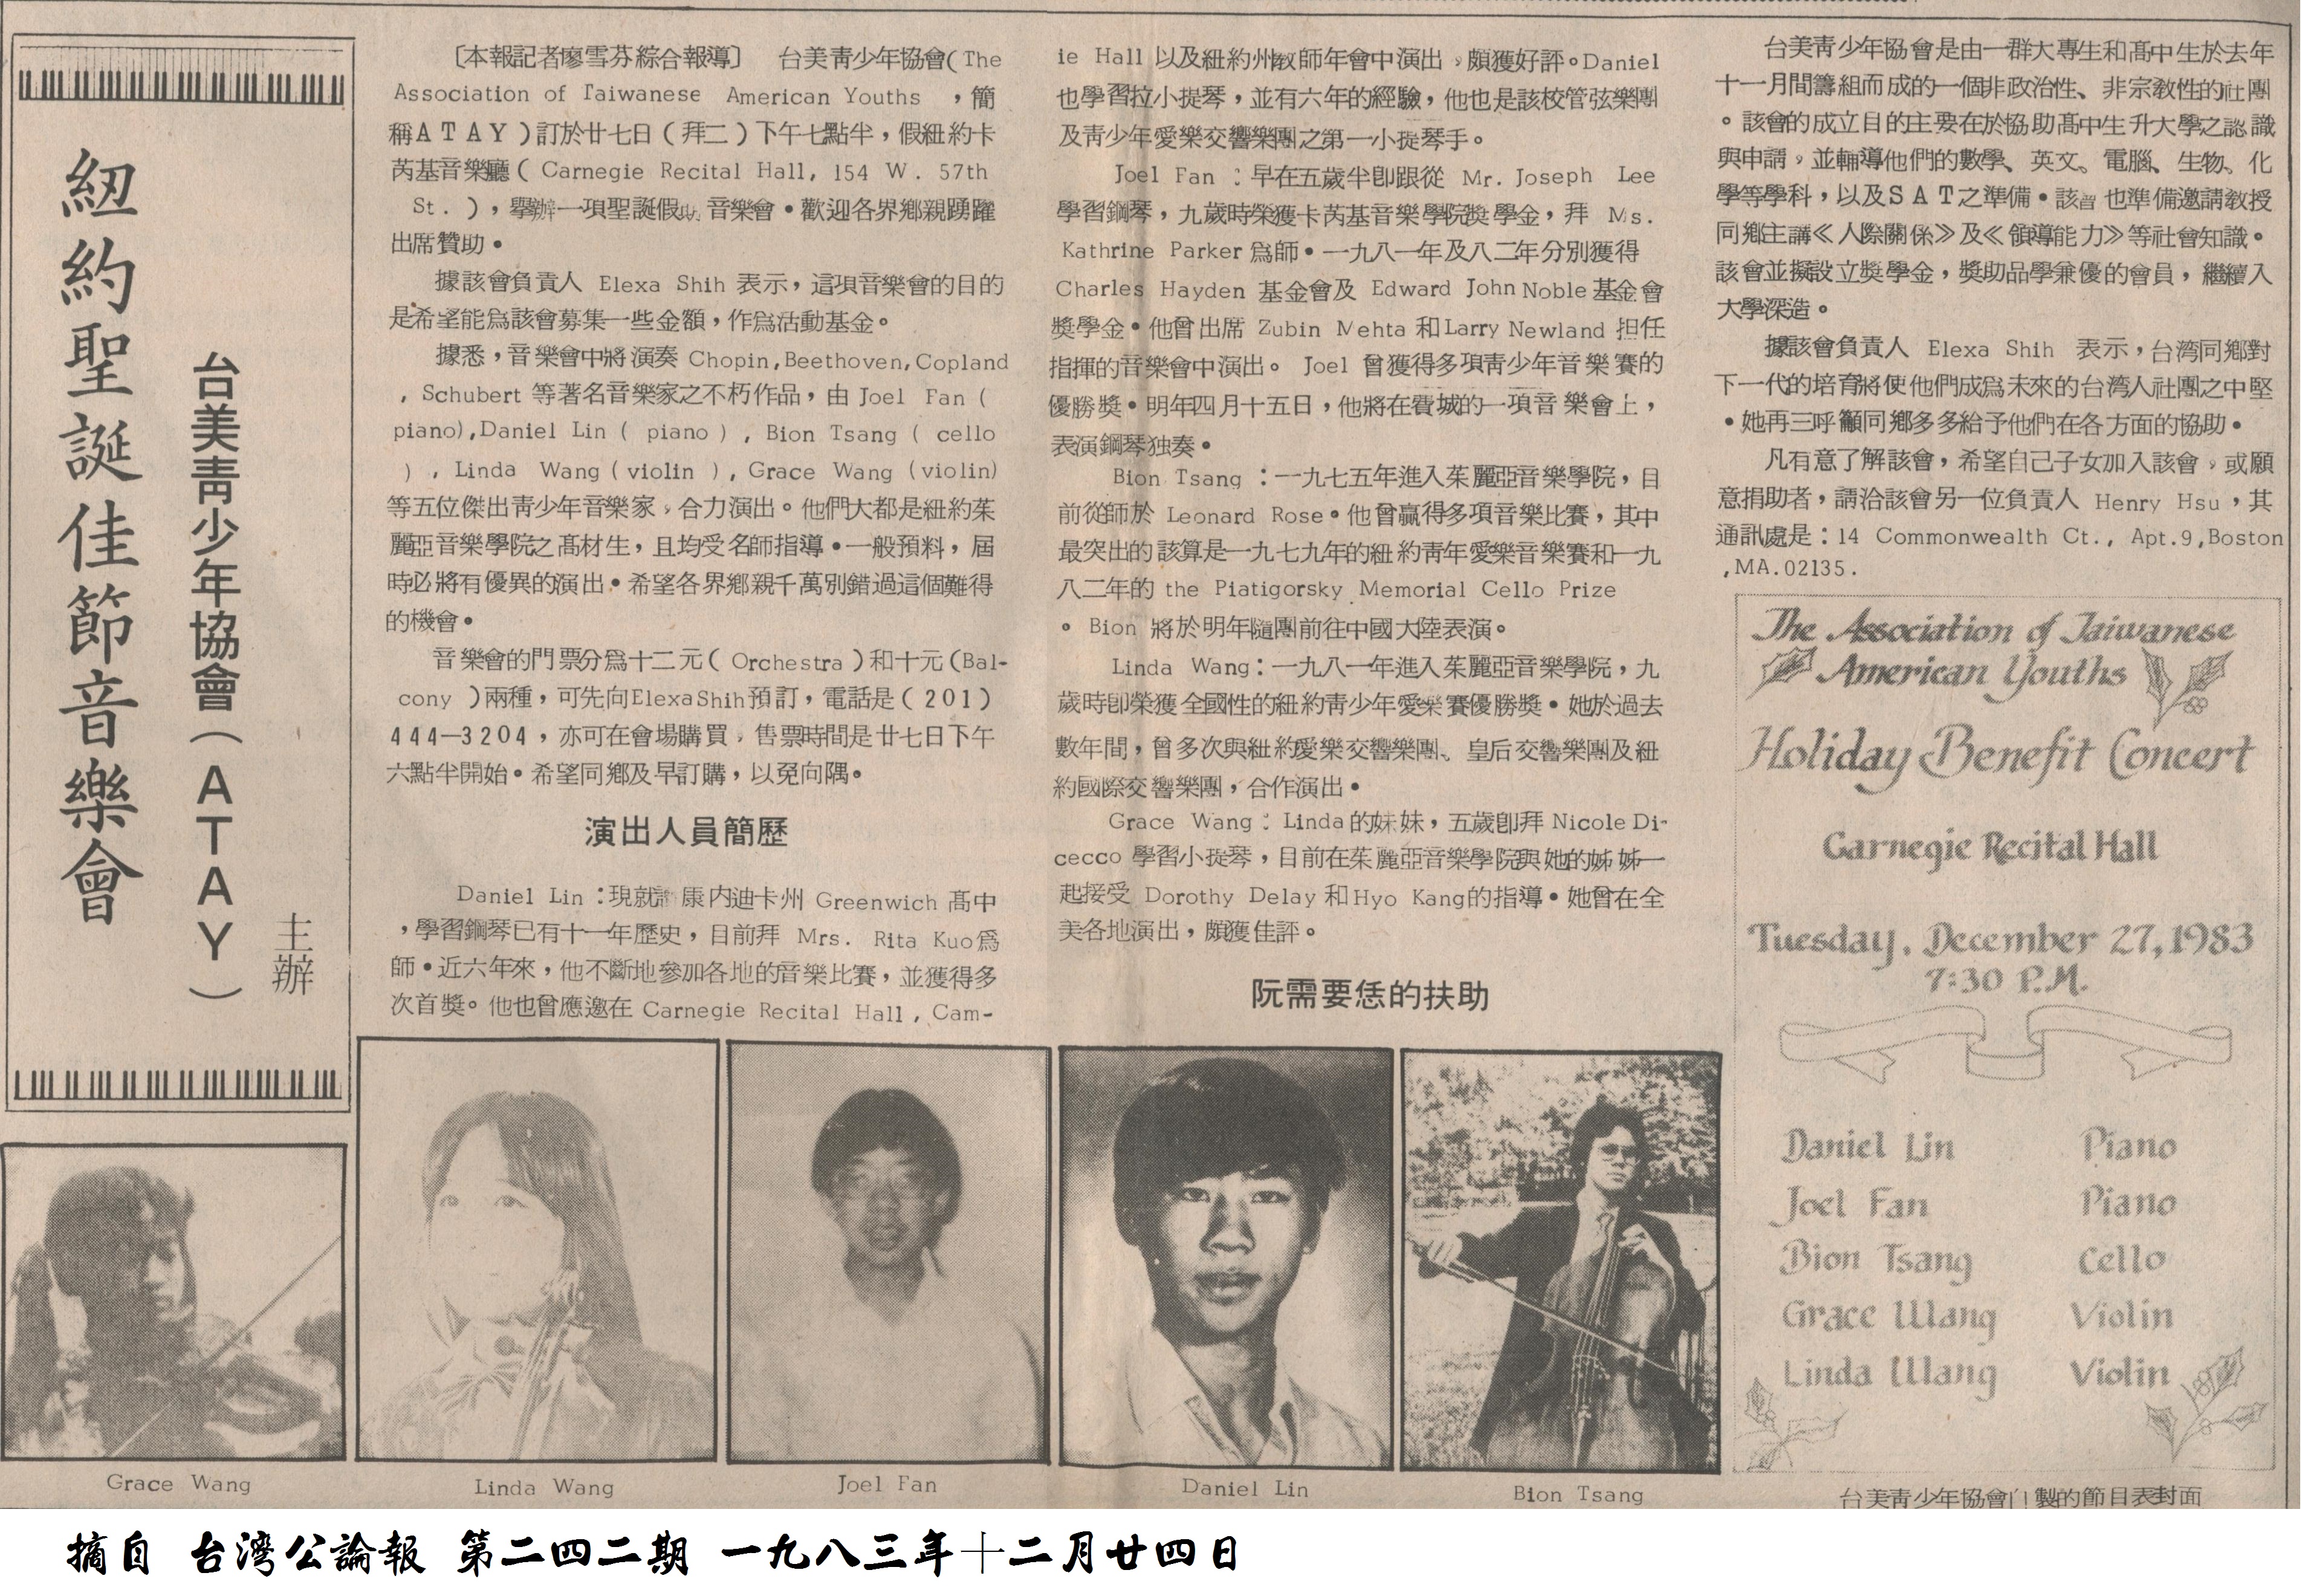 紐約聖誕佳節音樂會
台美青少年協會(ATAY)
主辦
〔本報記者廖雪芬綜合報導〕 台美青少年協會(The
Association of Taiwanese American Youths ,簡
稱ATAY)訂於廿七日(拜二)下午七點半,假紐約卡
芮基音樂廳( Carnegie Recital Hall, 154 W. 57th
St. ),舉辦一項聖誕假 音樂會•歡迎各界鄉親踴躍
出席贊助•
據該會負責人 Elexa Shih 表示,這項音樂會的目的
是希望能爲該會募集一些金額,作爲活動基金。
據悉,音樂會中將演奏 Chopin,Beethoven,Copland
, Schubert 等著名音樂家之不朽作品,由 Joel Fan (
piano),Daniel Lin ( piano ) , Bion Tsang ( cello
) , Linda Wang ( violin ) , Grace Wang (violin)
等五位傑出青少年音樂家,合力演出。他們大都是紐約茱
麗亞音樂學院之高材生,且均受名師指導•一般預料,屆
時必將有優異的演出•希望各界鄉親千萬別錯過這個難得
的機會•
音樂會的門票分爲十二元( Orchestra )和十元(Bal-
cony )兩種,可先向Elexa Shih預訂,電話是(201)
444—3204,亦可在會場購買,售票時間是廿七日下午
六點半開始。希望同鄉及早訂購,以免向隅。
演出人員簡歷
Daniel Lin:現就 康內迪卡州 Greenwich 高中
,學習鋼琴已有十一年歷史,目前拜 Mrs. Rita Kuo爲
師•近六年來,他不斷地參加各地的音樂比賽,並獲得多
次首獎。他也曾應邀在 Carnegie Recital Hall , Cam-
ie Hall 以及紐約州教師年會中演出,頗獲好評。Daniel
也學習拉小提琴,並有六年的經驗,他也是該校管弦樂團
及青少年愛樂交響樂團之第一小提琴手。
Joel Fan :早在五歲半卽跟從 Mr. Joseph Lee
學習鋼琴,九歲時榮獲卡芮基音樂學院獎學金,拜 Ms.
Kathrine Parker 爲師•一九八一年及八二年分別獲得
Charles Hayden 基金會及 Edward John Noble 基金會
獎學金•他曾出席 Zubin Mehta 和Larry Newland 担任
指揮的音樂會中演出。 Joel 曾獲得多項青少年音樂賽的
優勝獎•明年四月十五日,他將在費城的一項音樂會上,
表演鋼琴独奏•
Bion Tsang :一九七五年進入茱麗亞音樂學院,目
前從師於 Leonard Rose•他曾贏得多項音樂比賽,其中
最突出的該算是一九七九年的紐約青年愛樂音樂賽和一九
八二年的 the Piatigorsky Memorial Cello Prize
。 Bion 將於明年隨團前往中國大陸表演。
Linda Wang:一九八一年進入茱麗亞音樂學院,九
歲時卽榮獲全國性的紐約青少年愛樂賽優勝獎•她於過去
數年間,曾多次與紐約愛樂交響樂團、皇后交響樂團及紐
約國際交響樂團,合作演出•
Grace Wang: Linda的妹妹,五歲卽拜 Nicole Di-
cecco 學習小提琴,目前在茱麗亞音樂學院與她的姊姊一
起接受 Dorothy Delay 和Hyo Kang的指導•她曾在全
美各地演出,頗獲佳評。
阮需要恁的扶助
台美青少年協會是由一群大專生和高中生於去年
十一月間籌組而成的一個非政治性、非宗教性的社團
。該會的成立目的主要在於協助高中生升大學之認識
與申請,並輔導他們的數學、英文。電腦、生物、化
學等學科,以及SAT之準備•該 也準備邀請教授
同鄉主講《人際關係》及《領導能力》等社會知識。
該會並擬設立獎學金,獎助品學兼優的會員,繼續入
大學深造。
據該會負責人 Elexa Shih 表示,台湾同鄉對
下一代的培育將使他們成爲未來的台湾人社團之中堅
•她再三呼籲同鄉多多給予他們在各方面的協助•
凡有意了解該會,希望自己子女加入該會,或願
意捐助者,請洽該會另一位負責人 Henry Hsu ,其
通訊處是:14 Commonwealth Ct., Apt.9,Boston
,MA.02135.
The Association of Taiwanese
American Youths
Holiday Benefit Concert
Carnegie Recital Hall
Tuesday, December 27, 1983
7:30 P.M.
Daniel Lin Piano
Joel Fan Piano
Bion Tsang Cello
Grace Wang Violin
Linda Wang Violin
台美青少年協會自製的節目表封面
Grace Wang
Linda Wang
Joel Fan
Daniel Lin
Bion Tsang
摘自 台灣公論報 第二四二期 一九八三年十二月廿四日